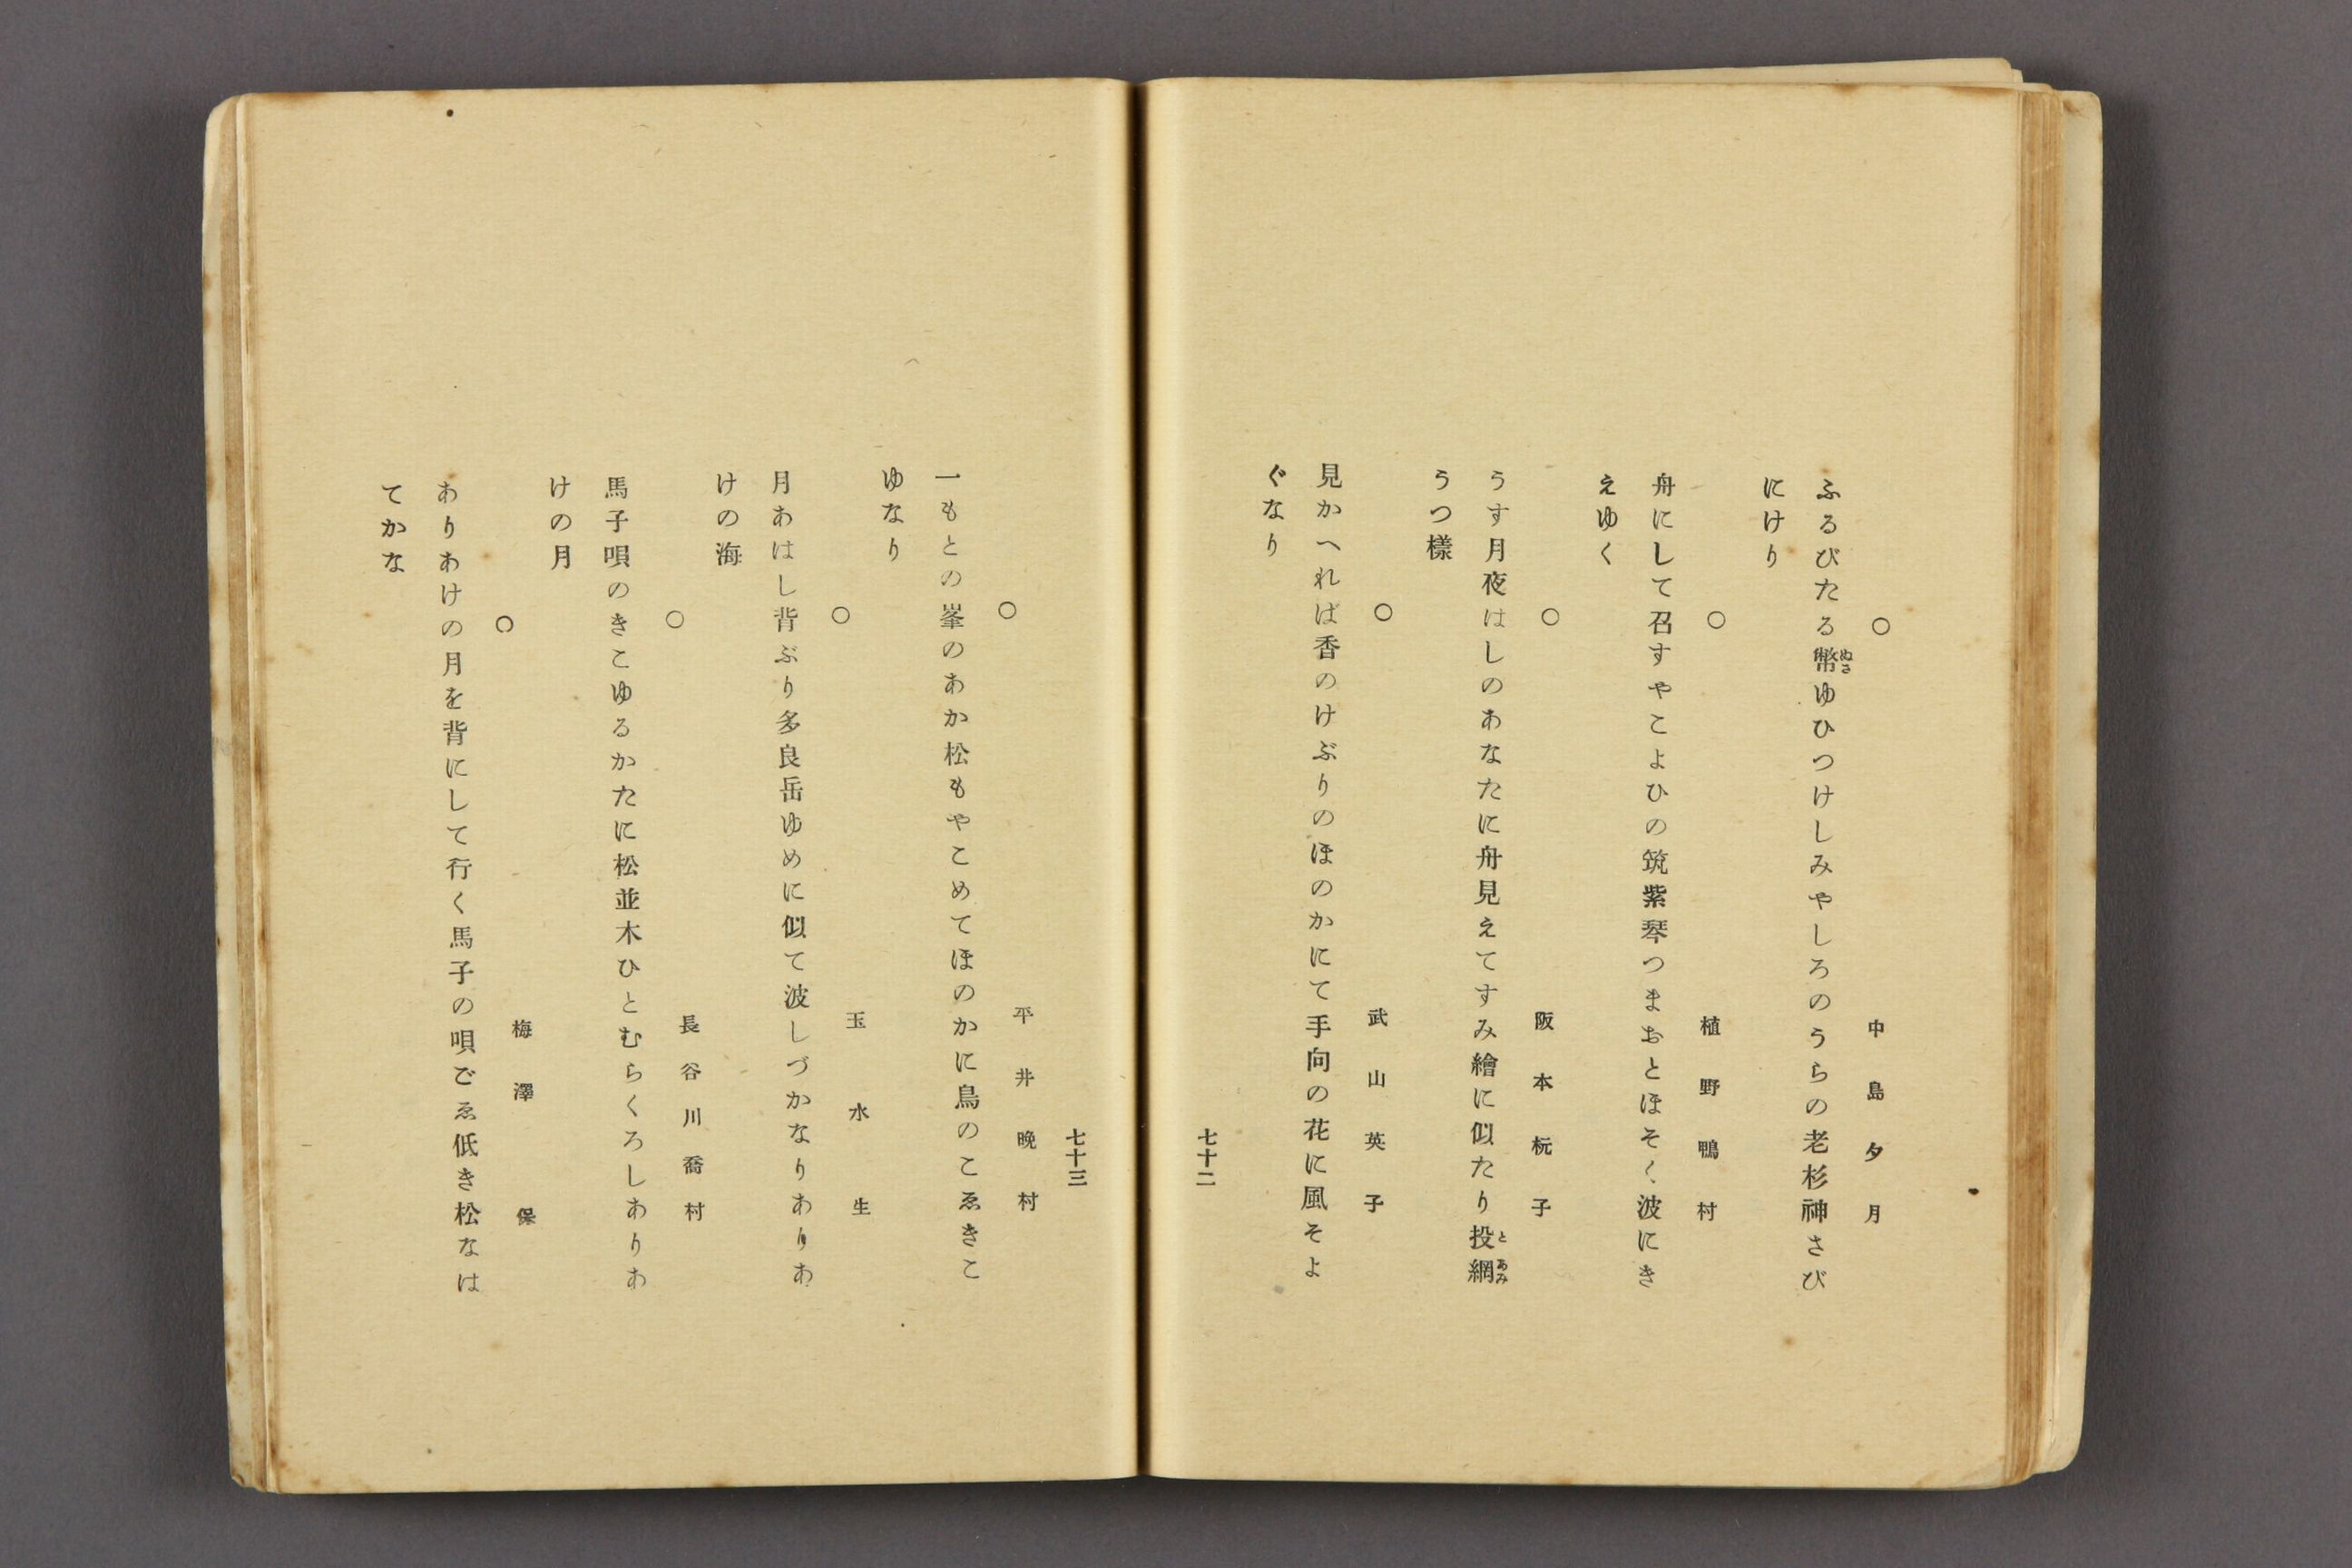 ○　中島夕月
ふるびたる幣ゆひつけしみやしろのうらの老杉神さび
ぬさ
にけり
○　植野鴨村
舟にして召すやこよひの筑紫琴つまおとほそく波にき
えゆく
○　阪本杬子
うす月夜はしのあなたに舟見えてすみ繪に似たり投網
とあみ
うつ樣
○　武山英子
見かへれば香のけぶりのほのかにて手向の花に風そよ
ぐなり
七十二
七十三
○　平井晩村
一もとの峯のあか松もやこめてほのかに鳥のこゑきこ
ゆなり
○　玉水生
月あはし背ぶり多良岳ゆめに似て波しづかなりありあ
けの海
○　長谷川喬村
馬子唄のきこゆるかたに松並木ひとむらくろしありあ
けの月
○　梅澤保
ありあけの月を背にして行く馬子の唄ごゑ低き松なは
てかな